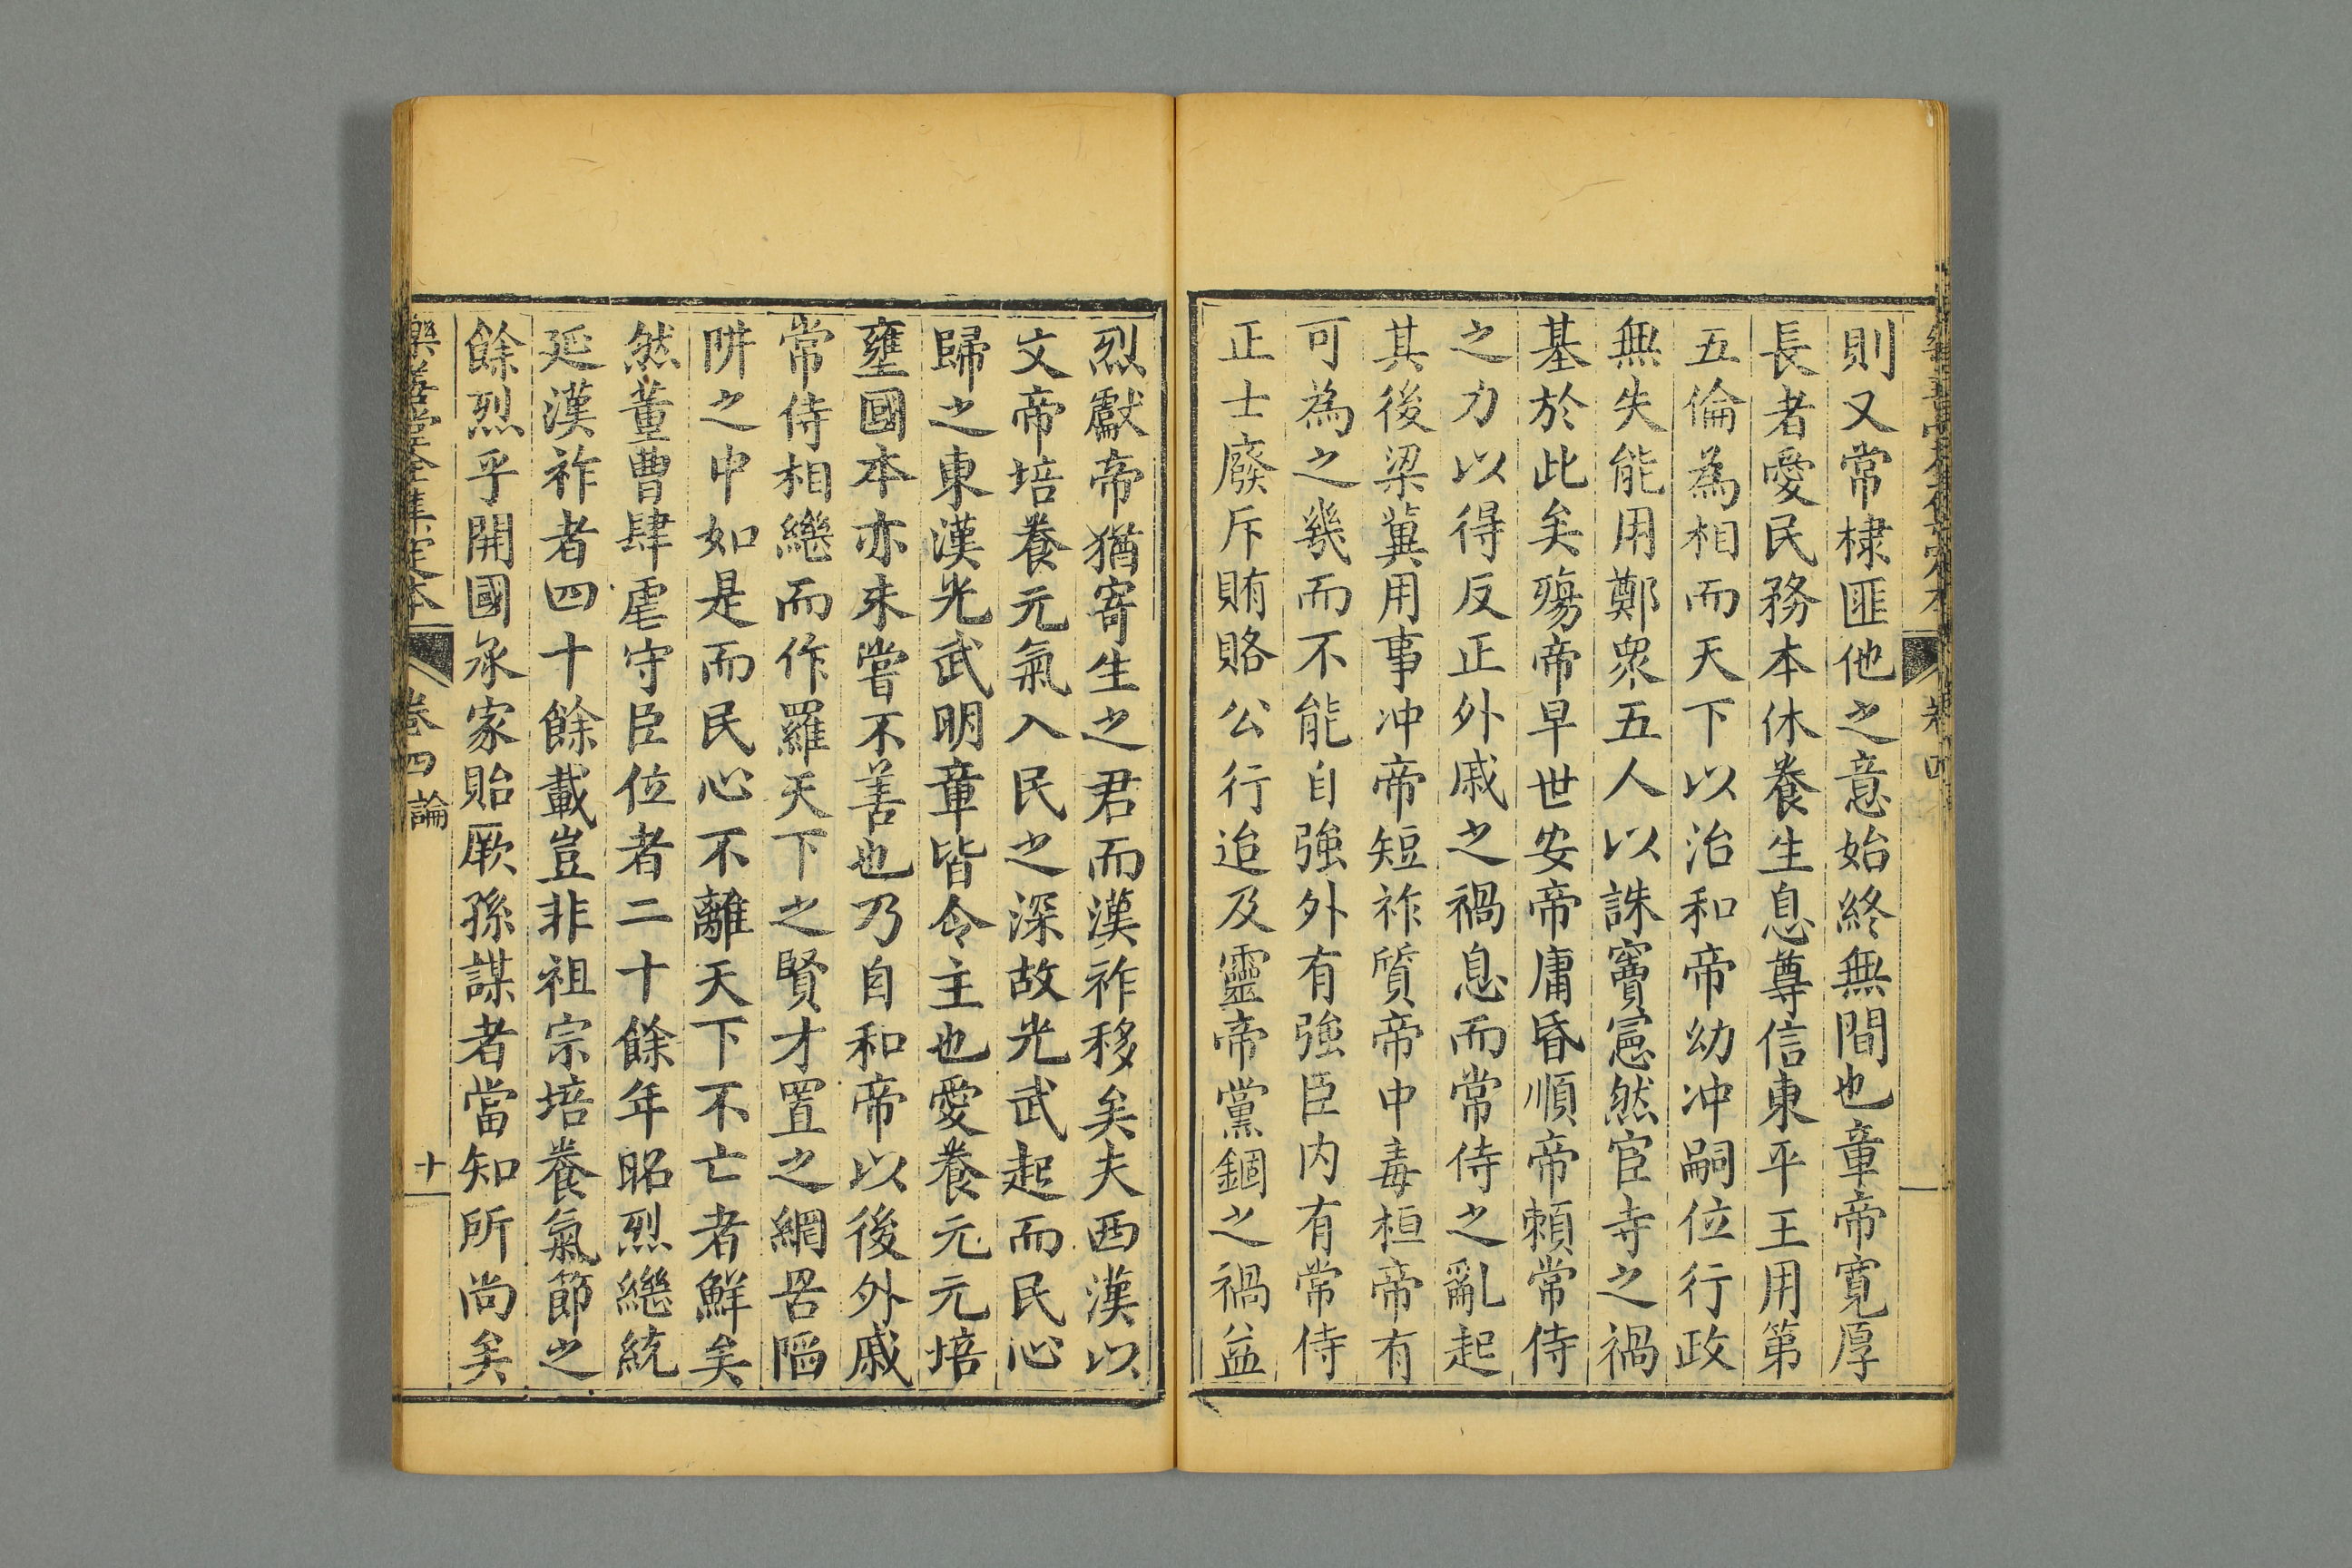 則又常棣匪他之意始終無間也章帝寛厚
長者愛民務本休養生息尊信東平王用第
五倫為相而天下以治和帝幼冲嗣位行政
無失能用鄭衆五人以誅竇憲然宦寺之禍
基於此矣殤帝早世安帝庸昏順帝賴常侍
之力以得反正外戚之禍息而常侍之亂起
其後梁冀用事冲帝短祚質帝中毒桓帝有
可為之幾而不能自強外有強臣内有常侍
正士廢斥賄賂公行迨及靈帝黨錮之禍益
烈獻帝猶寄生之君而漢祚移矣夫西漢以
文帝培養元氣入民之深故光武起而民心
歸之東漢光武明章皆令主也愛養元元培
壅國本亦未嘗不善也乃自和帝以後外戚
常侍相繼而作羅天下之賢才置之網罟陷
阱之中如是而民心不離天下不亡者鮮矣
然董曹肆虐守臣位者二十餘年昭烈繼統
延漢祚者四十餘載豈非祖宗培養氣節之
餘烈乎開國承家貽厥孫謀者當知所尚矣
樂善堂全集定本 卷四 論 十